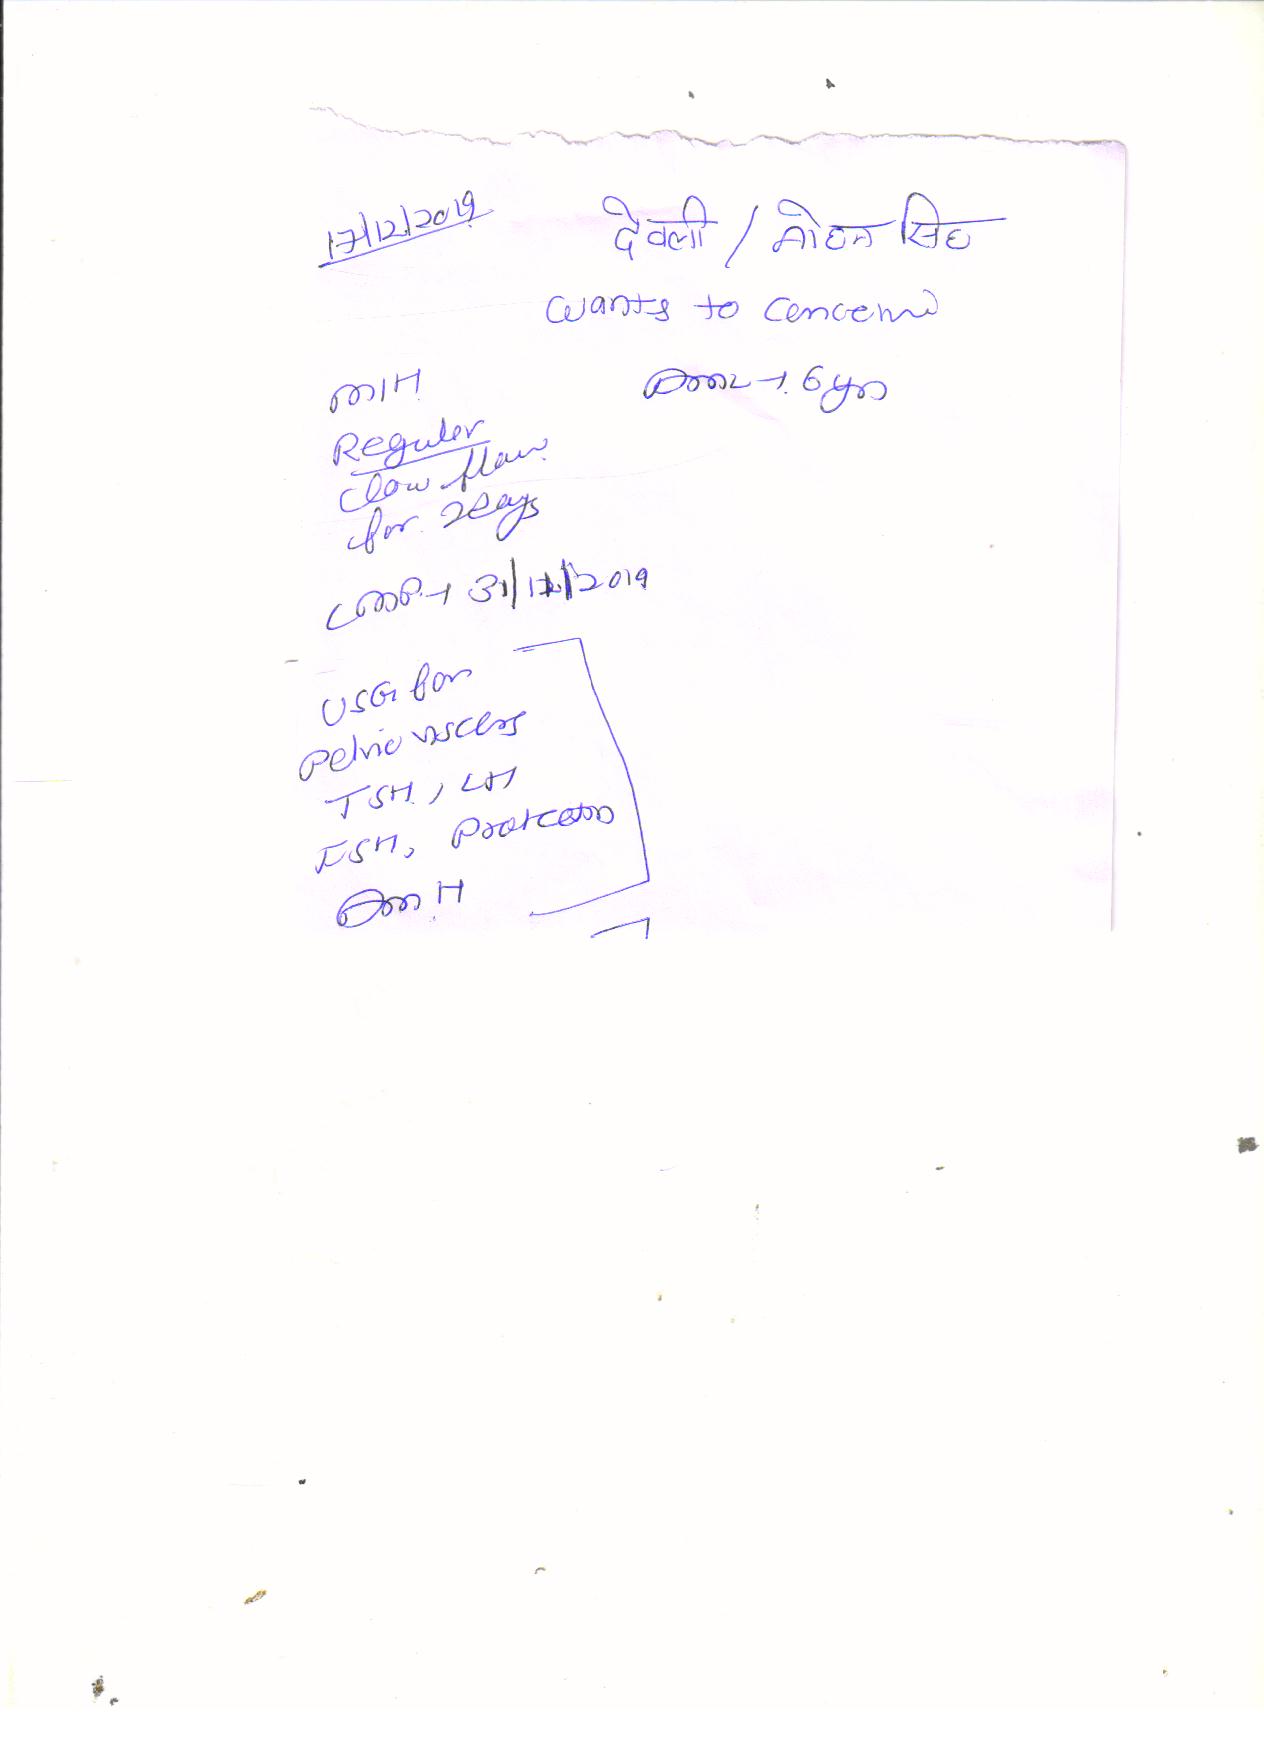 17/12/2019
देवली / मोहन सिंह
wants to conceive
M/H
AML → 6 yrs
Reguler
low flow
for 2 days
LMP → 31/11/2019
USG for
Pelvic viscera
TSH, LH
FSH, Prolactin
AMH